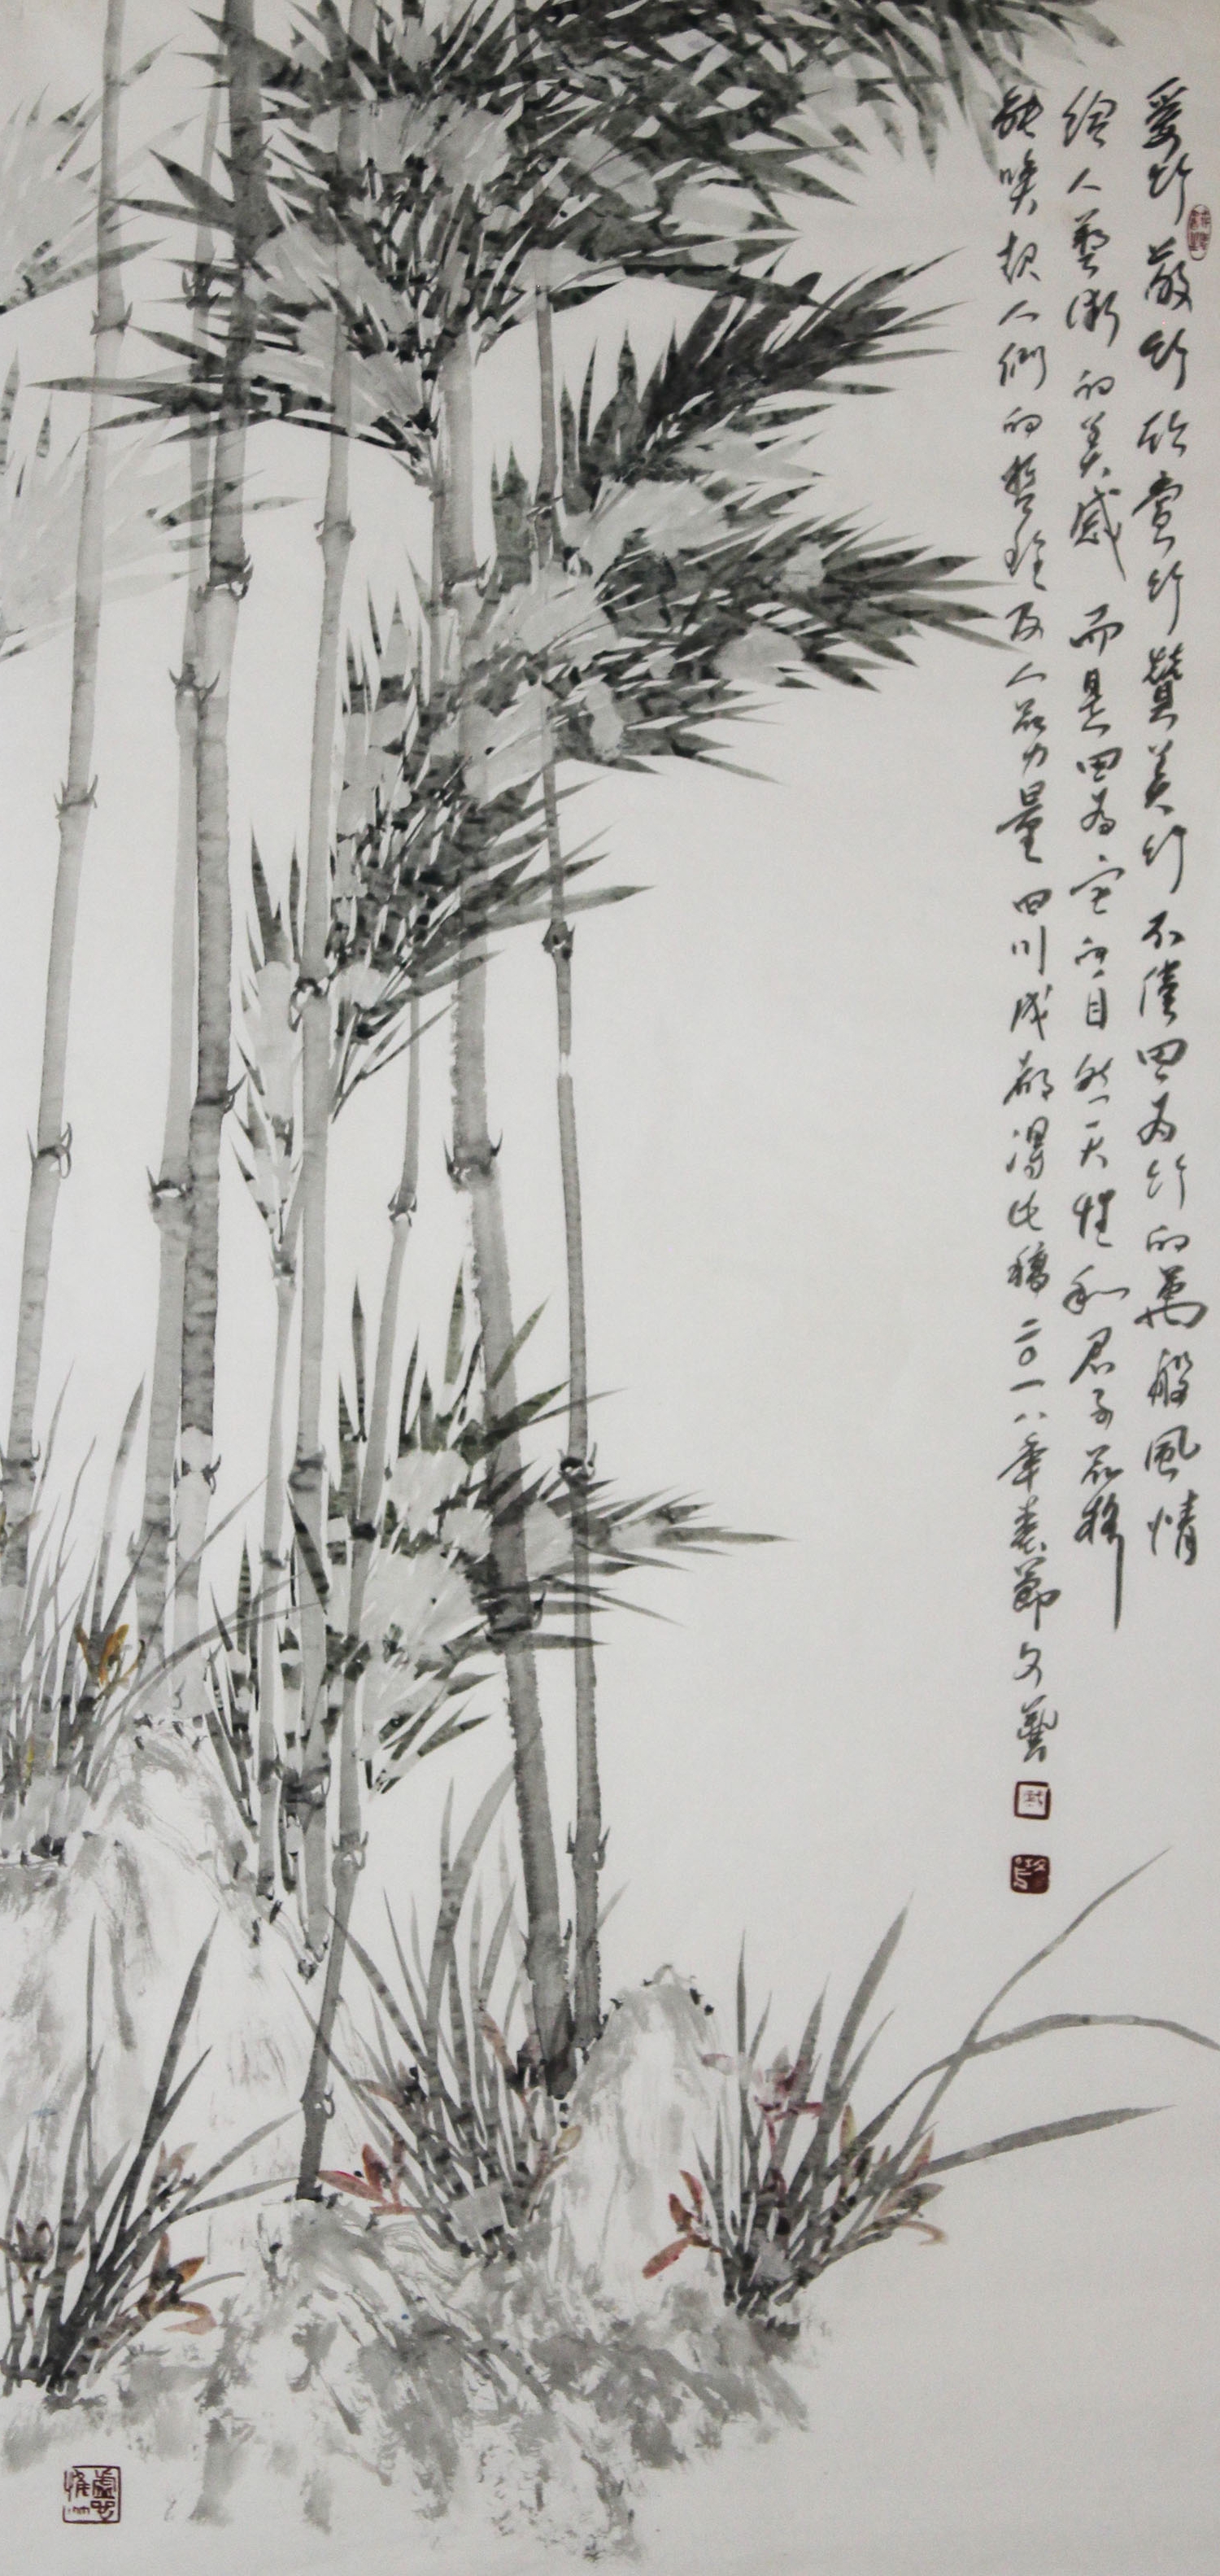 爱竹敬竹欣赏竹赞美竹不仅因为竹的萬般風情
给人艺术的美感而是因为它的自然天性和君子品格
能唤起人们的哲理及人品力量四川成都湯比稿二〇一八年春節文藝